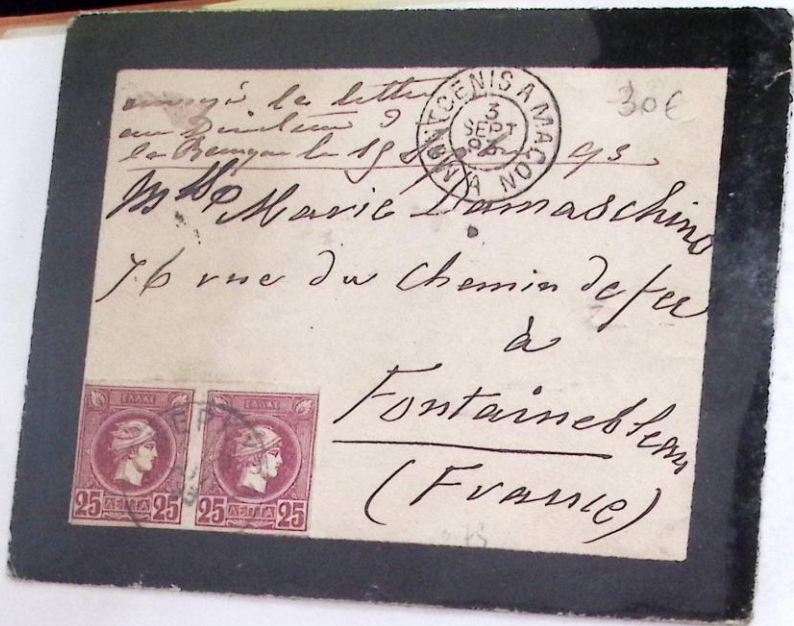 envoyé la lettre
au Directeur
la Banque le 19 93
MONTCENIS A MACON
3
SEPT
93
30€
Mlle Marie Damaschino
76 rue du Chemin de fer
à
Fontainebleau
(France)
ΕΛΛΑΣ ΕΛΛΑΣ
25 ΛΕΠΤΑ 25 25 ΛΕΠΤΑ 25